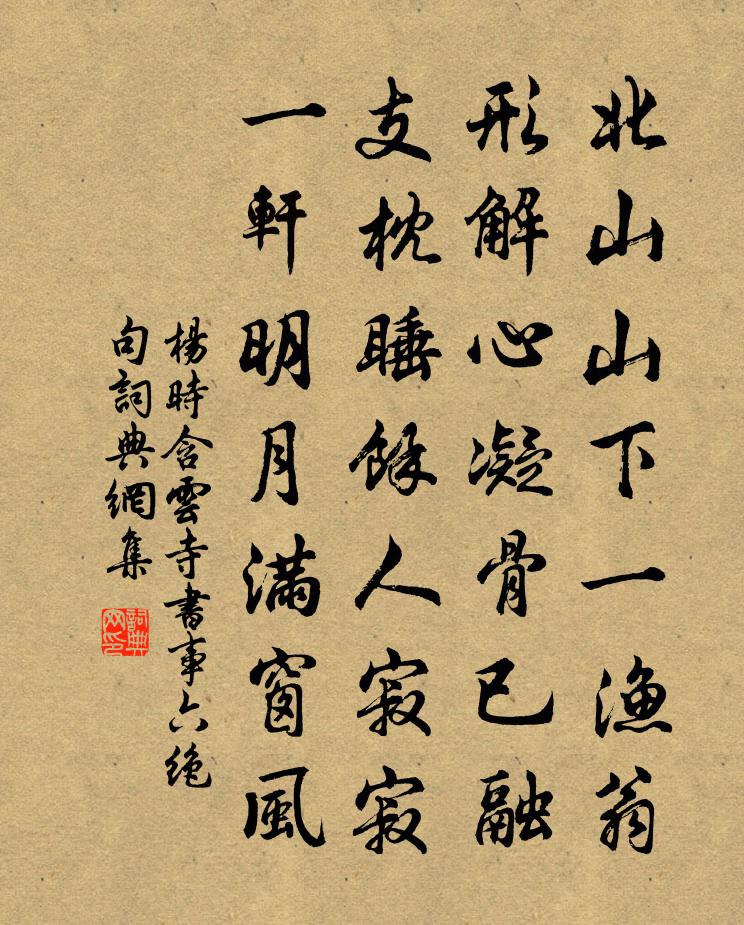 北山山下一漁翁
形解心凝骨已融
支枕睡餘人寂寂
一軒明月滿窗風
楊時含雲寺書事六絕
句詞典網集
詞典
网印